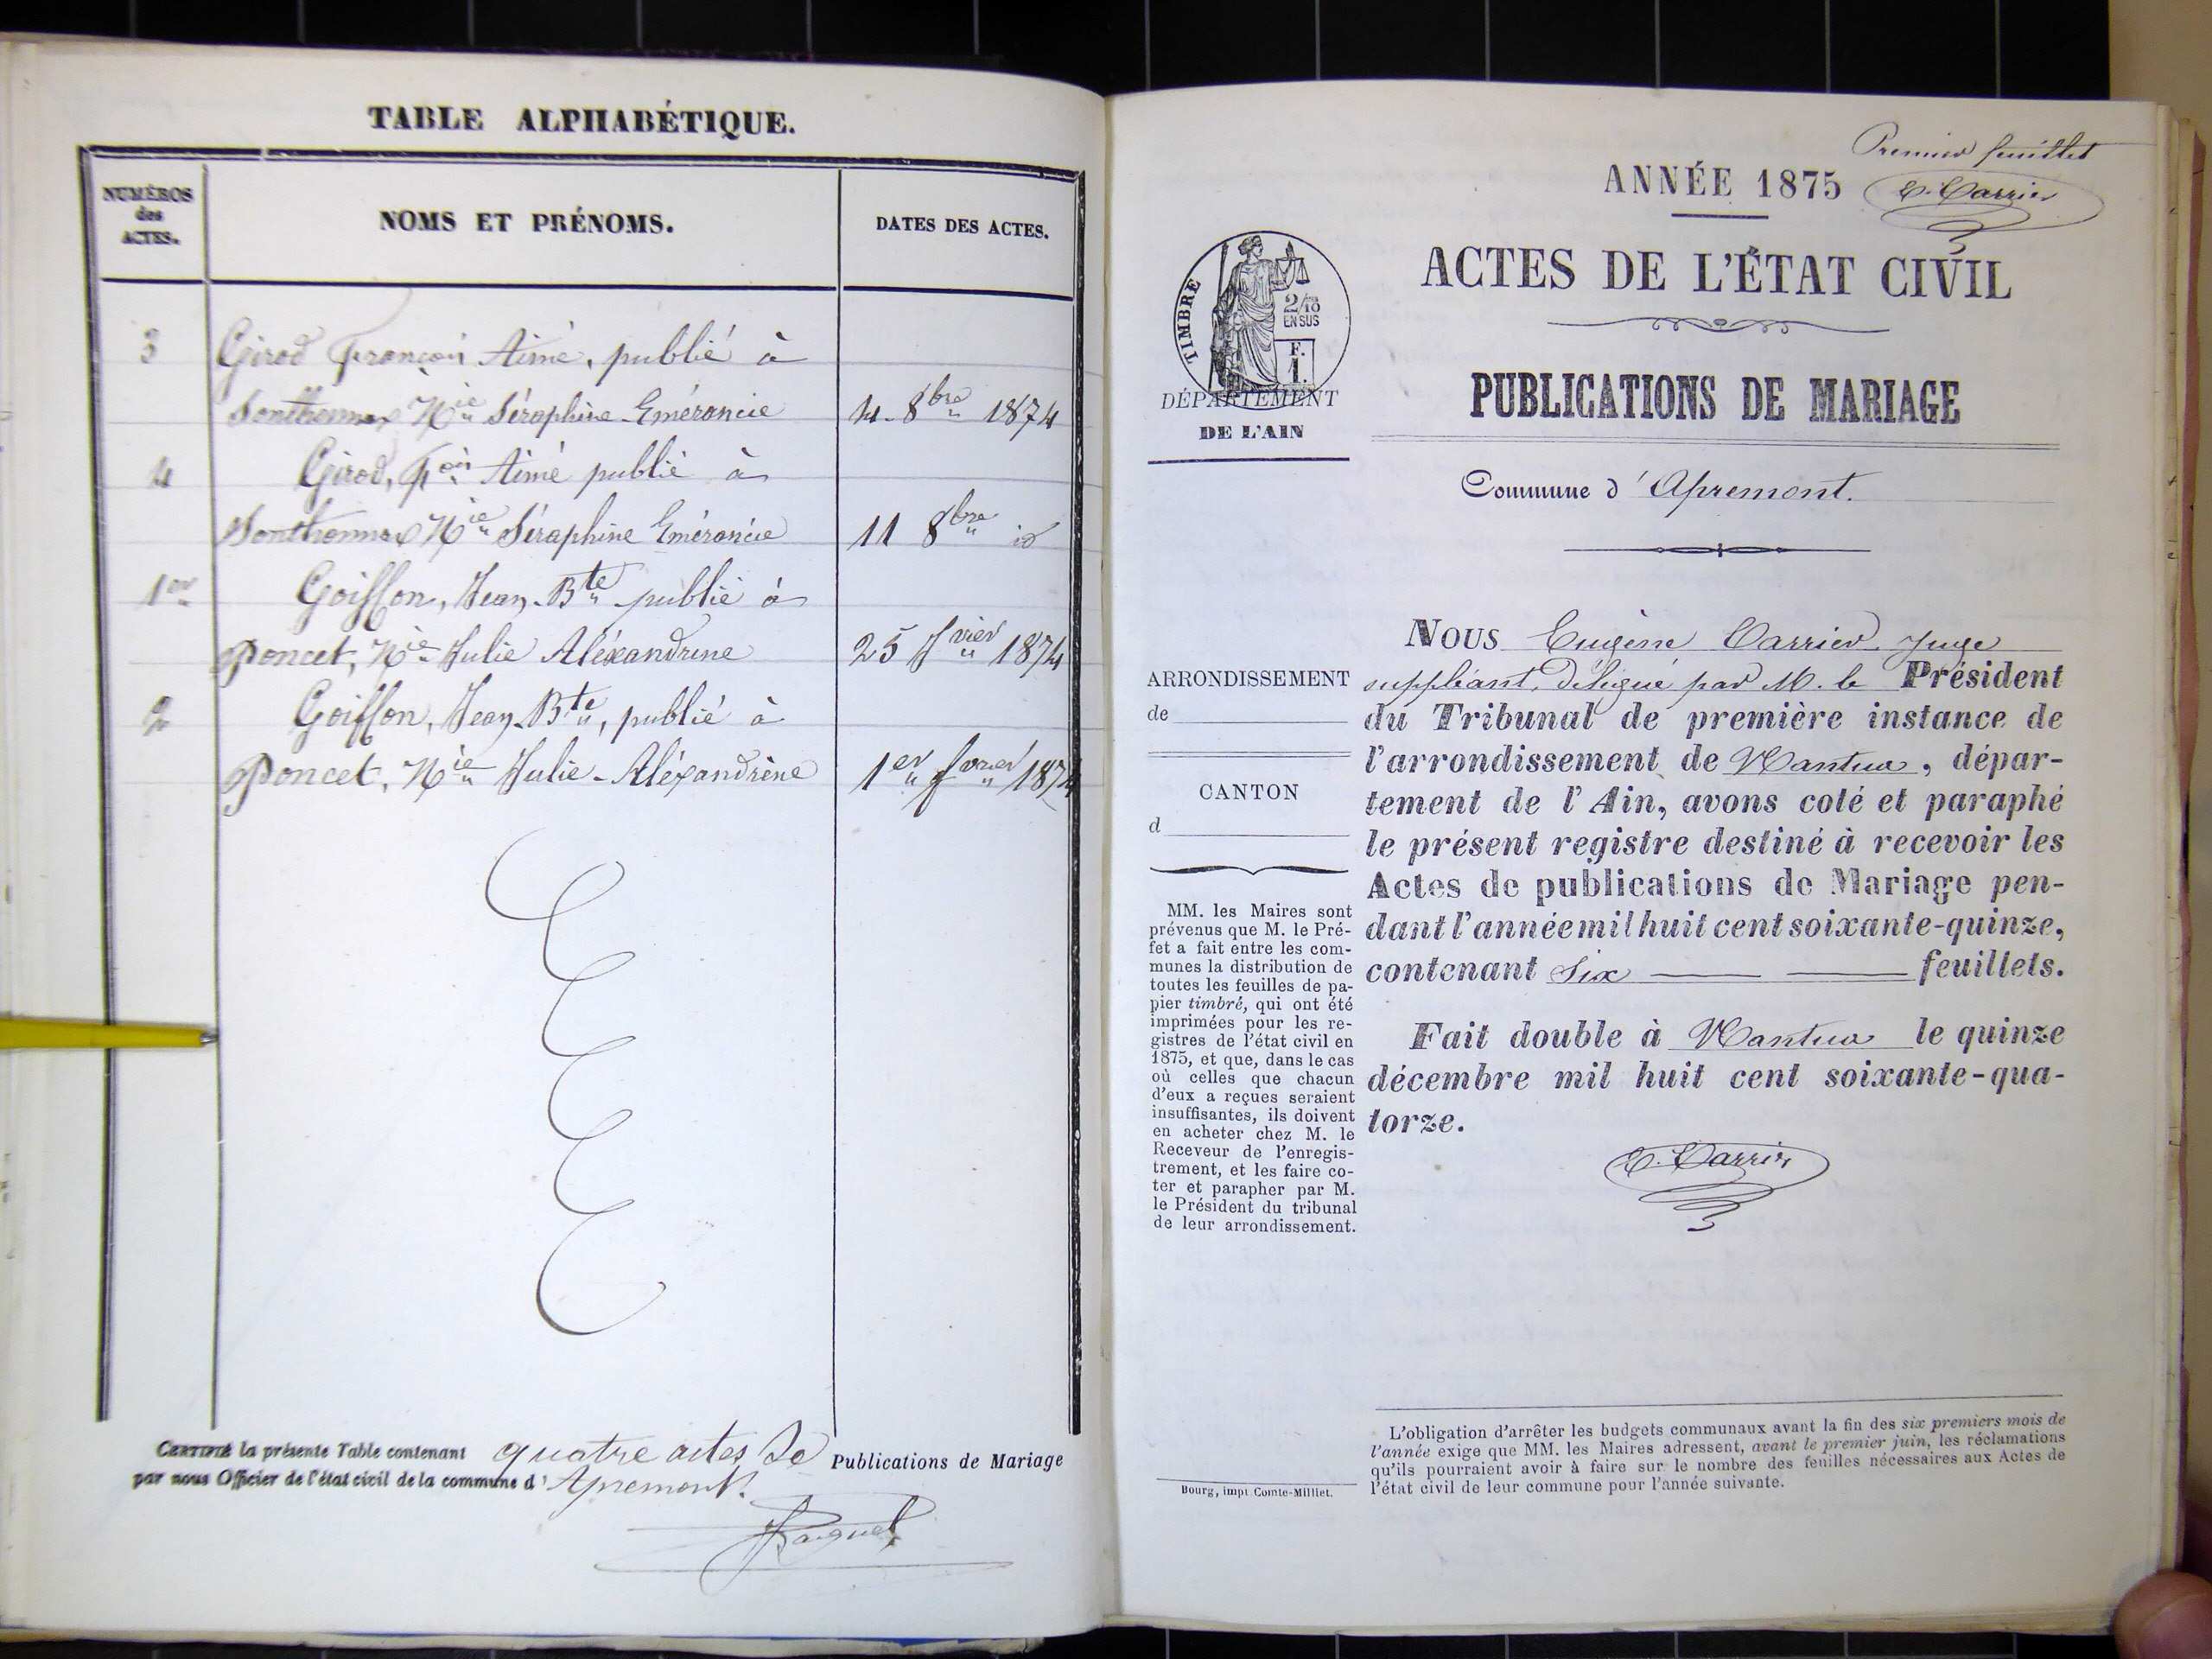 TABLE ALPHABÉTIQUE.
NUMÉROS
des
ACTES.
NOMS ET PRÉNOMS.
DATES DES ACTES.
3 Girod François Aimé, publié à
Sonthonnax Mie Séraphine Emérancie 4 8bre 1874
4 Girod, Fois Aimé publié à
Sonthonnax Mie Séraphine Emérancie 11 8bre id
1er Goiffon, Jean Bte publié à
Poncet, Mie Julie Aléxandrine 25 Jvier 1874
2 Goiffon, Jean Bte, publié à
Poncet, Mie Julie-Aléxandrine 1er fvrier 1874
CERTIFIÉ la présente Table contenant quatre actes de Publications de Mariage
par nous Officier de l'état civil de la commune d'Apremont.
Premier feuillet
ANNÉE 1875
E. Carrier
ACTES DE L'ÉTAT CIVIL
TIMBRE
2/10
EN SUS
F.
1.
PUBLICATIONS DE MARIAGE
DÉPARTEMENT
DE L'AIN
Commune d'Apremont.
ARRONDISSEMENT
de
CANTON
d
MM. les Maires sont
prévenus que M. le Pré-
fet a fait entre les com-
munes la distribution de
toutes les feuilles de pa-
pier timbré, qui ont été
imprimées pour les re-
gistres de l'état civil en
1875, et que, dans le cas
où celles que chacun
d'eux a reçues seraient
insuffisantes, ils doivent
en acheter chez M. le
Receveur de l'enregis-
trement, et les faire co-
ter et parapher par M.
le Président du tribunal
de leur arrondissement.
NOUS Eugène Carrier Juge
suppléant, délégué par M. le Président
du Tribunal de première instance de
l'arrondissement de Nantua, dépar-
tement de l'Ain, avons coté et paraphé
le présent registre destiné à recevoir les
Actes de publications de Mariage pen-
dant l'année mil huit cent soixante-quinze,
contenant six feuillets.
Fait double à Nantua le quinze
décembre mil huit cent soixante-qua-
torze.
E. Carrier
L'obligation d'arrêter les budgets communaux avant la fin des six premiers mois de
l'année exige que MM. les Maires adressent, avant le premier juin, les réclamations
qu'ils pourraient avoir à faire sur le nombre des feuilles nécessaires aux Actes de
l'état civil de leur commune pour l'année suivante.
Bourg, impr. Comte-Milliet.